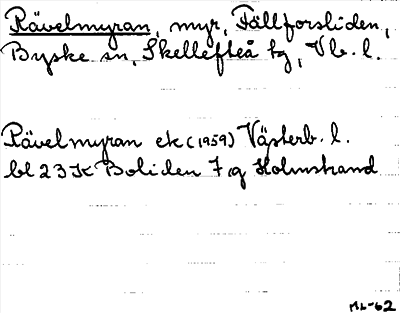 Rävelmyran, myr, Fällforsliden,
Byske sn, Skellefteå tg, Vb. l.
Rävelmyran ek (1959) Västerb. l.
bl 23 K Boliden 7 g Holmstrand
ML-62